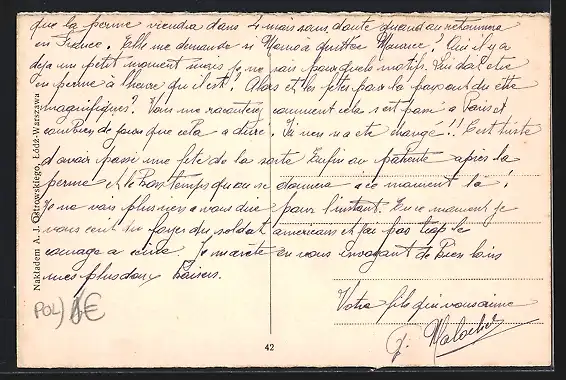 que la perme viendra dans 4 mois sans doute quand on retournera
en France. Elle me demande si Momo a quitté Maurice? Oui il y a
déjà un petit moment mais je ne sais pour quels motifs. Lui doit être
en perme à l'heure qu'il est! Alors et les fêtes pour la paix ont du être
magnifiques? Vous me raconterez comment cela s'est passé à Paris et
combien de jours que cela a duré. Ici rien n'a été changé!! C'est triste
d'avoir passé une fête de la sorte. Enfin on patiente après la
perme et le bon temps qu'on se donnera à ce moment là!
Je ne vais plus rien à vous dire pour l'instant. En ce moment je
vous écris du foyer du soldat americans et j'ai pas trop le
courage à écrire. Je m'arrête en vous envoyant de bien loin
mes plus doux baisers.
Votre fils qui vous aime
G.
Nakładem A. J. Ostrowskiego, Łódź-Warszawa
POL)
42